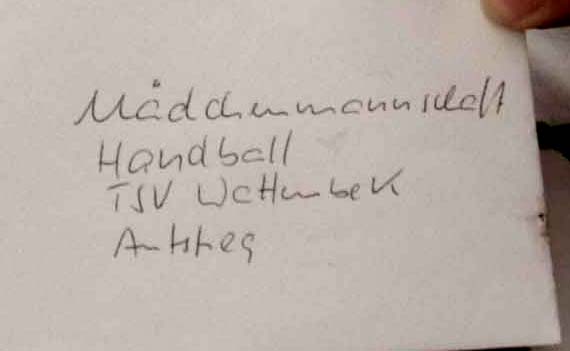 Mädchenmannschaft
Handball
TSV Wattenbek
Aufstieg